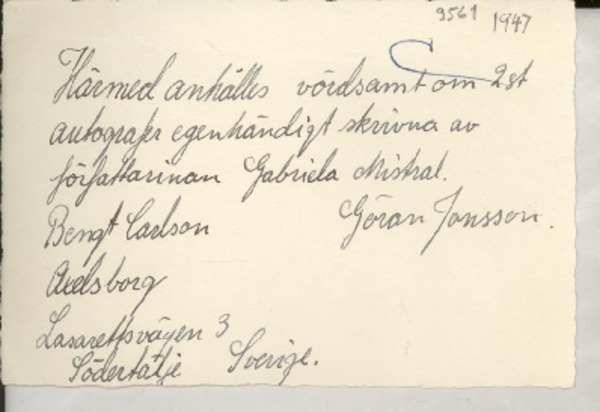 9561 1947
Härmed anhålles vördsamt om 2 st
autografer egenhändigt skrivna av
författarinnan Gabriela Mistral.
Bengt Carlson Göran Jonsson.
Axelsborg
Lasarettsvägen 3
Södertälje Sverige.